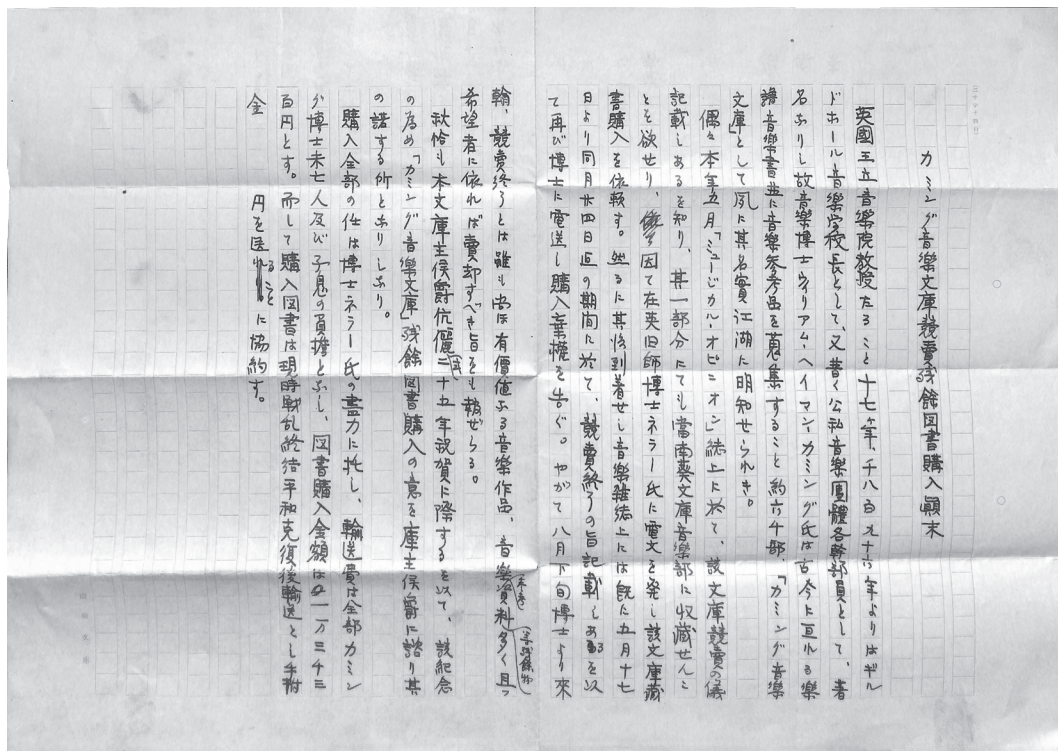 カミング音樂文庫競賣残餘図書購入顛末
英國王立音樂院教授たること十七ヶ年、千八百九十六年よりはギル
ドホール音樂学校長として、又普く公私音樂團體各幹部員として、著
名ありし故音樂博士ウィリアム・ヘイマン・カミング氏は古今に亘れる樂
譜音樂書並に音樂参考品を蒐集すること約六千部、「カミング音樂
文庫」として夙に其名實江湖に明知せられき。
偶々本年五月「ミュージカル・オピニオン」誌上に於て、該文庫競賣の儀
記載しあるを知り、其一部分にても當南葵文庫音樂部に収蔵せんこ
とを欲せり、因て在英旧師博士ネラー氏に電文を発し該文庫蔵
書購入を依頼す。然るに其後到着せし音楽雑誌上には既に五月十七
日より同月廿四日迄の期間に於て、競賣終了の旨記載しあるを以
て再び博士に電送し購入棄権を告ぐ。やがて八月下旬博士より來
翰、競賣終了とは雖も尚ほ有價値なる音楽作品、音樂資料多く且つ
未売
等残餘物
希望者に依れば賣却すべき旨をも報ぜらる。
秋恰も本文庫主侯爵伉儷二十五年祝賀に際するを以て、該紀念
の為め「カミング音樂文庫」残餘図書購入の意を庫主侯爵に諮り其
の諾する所となりしなり。
購入全部の仕は博士ネラー氏の盡力に托し、輸送費は全部カミン
グ博士未亡人及び子息の負擔となし、図書購入金額は一万三千三
百円とす。而して購入図書は現時戦乱終結平和克復後輸送とし手附
金　　　円を送ることに協約す。